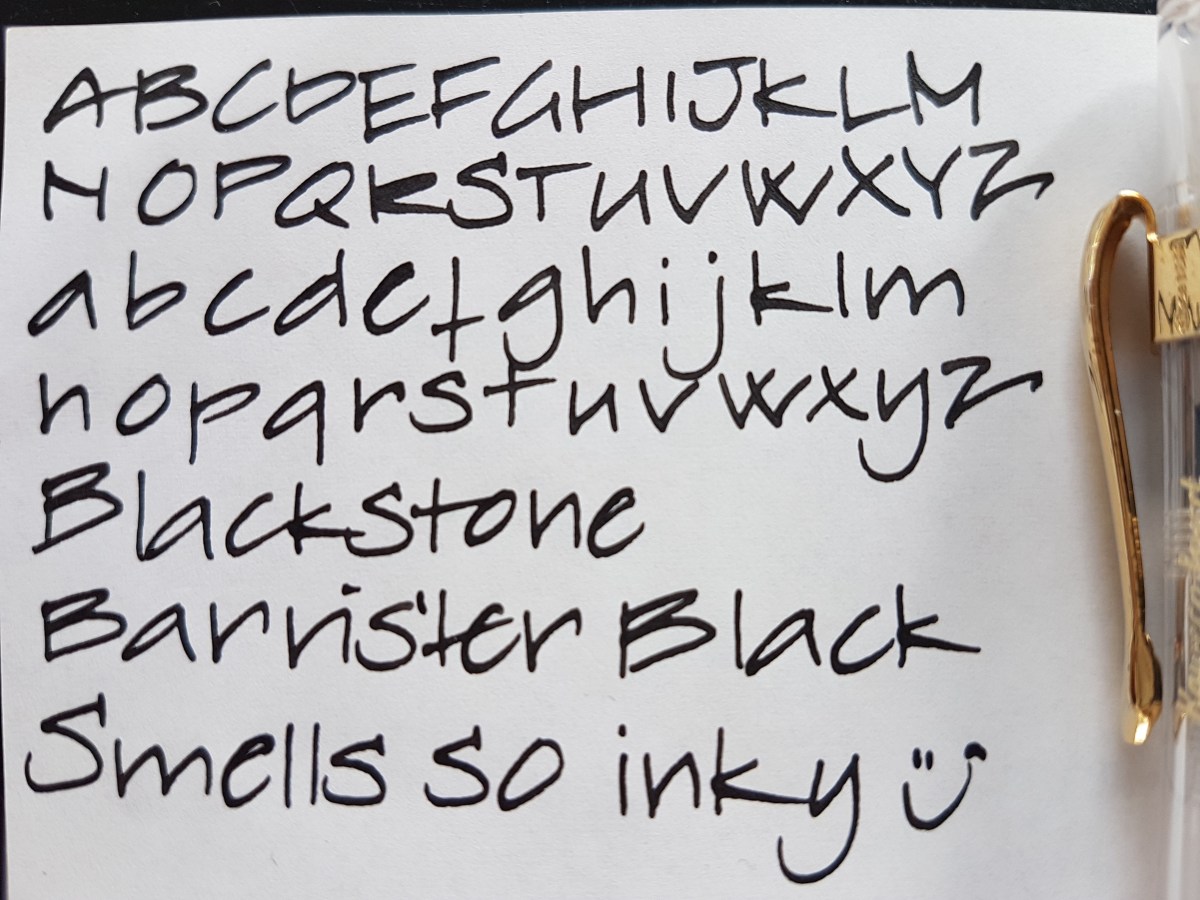 ABCDEFGHIJKLM
NOPQRSTUVWXYZ
abcdefghijklm
nopqrstuvwxyz
Blackstone
Barrister Black
Smells so inky